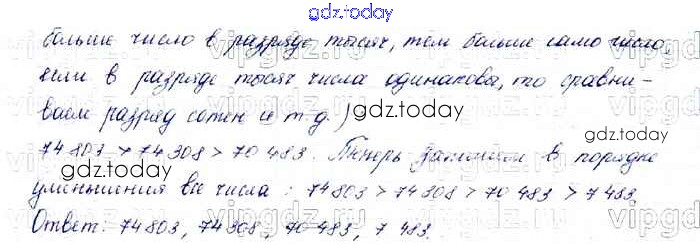 gdz.today
больше число в разряде тысяч, тем больше само число,
если в разряде тысяч числа одинаковы, то сравни-
ваем разряд сотен и т.д.)
gdz.today
gdz.today
74 803 > 74 308 > 70 483. Теперь запишем в порядке
gdz.today
уменьшения все числа: 74 803 > 74 308 > 70 483 > 7 483
Ответ: 74 803, 74 308, 70 483, 7 483.